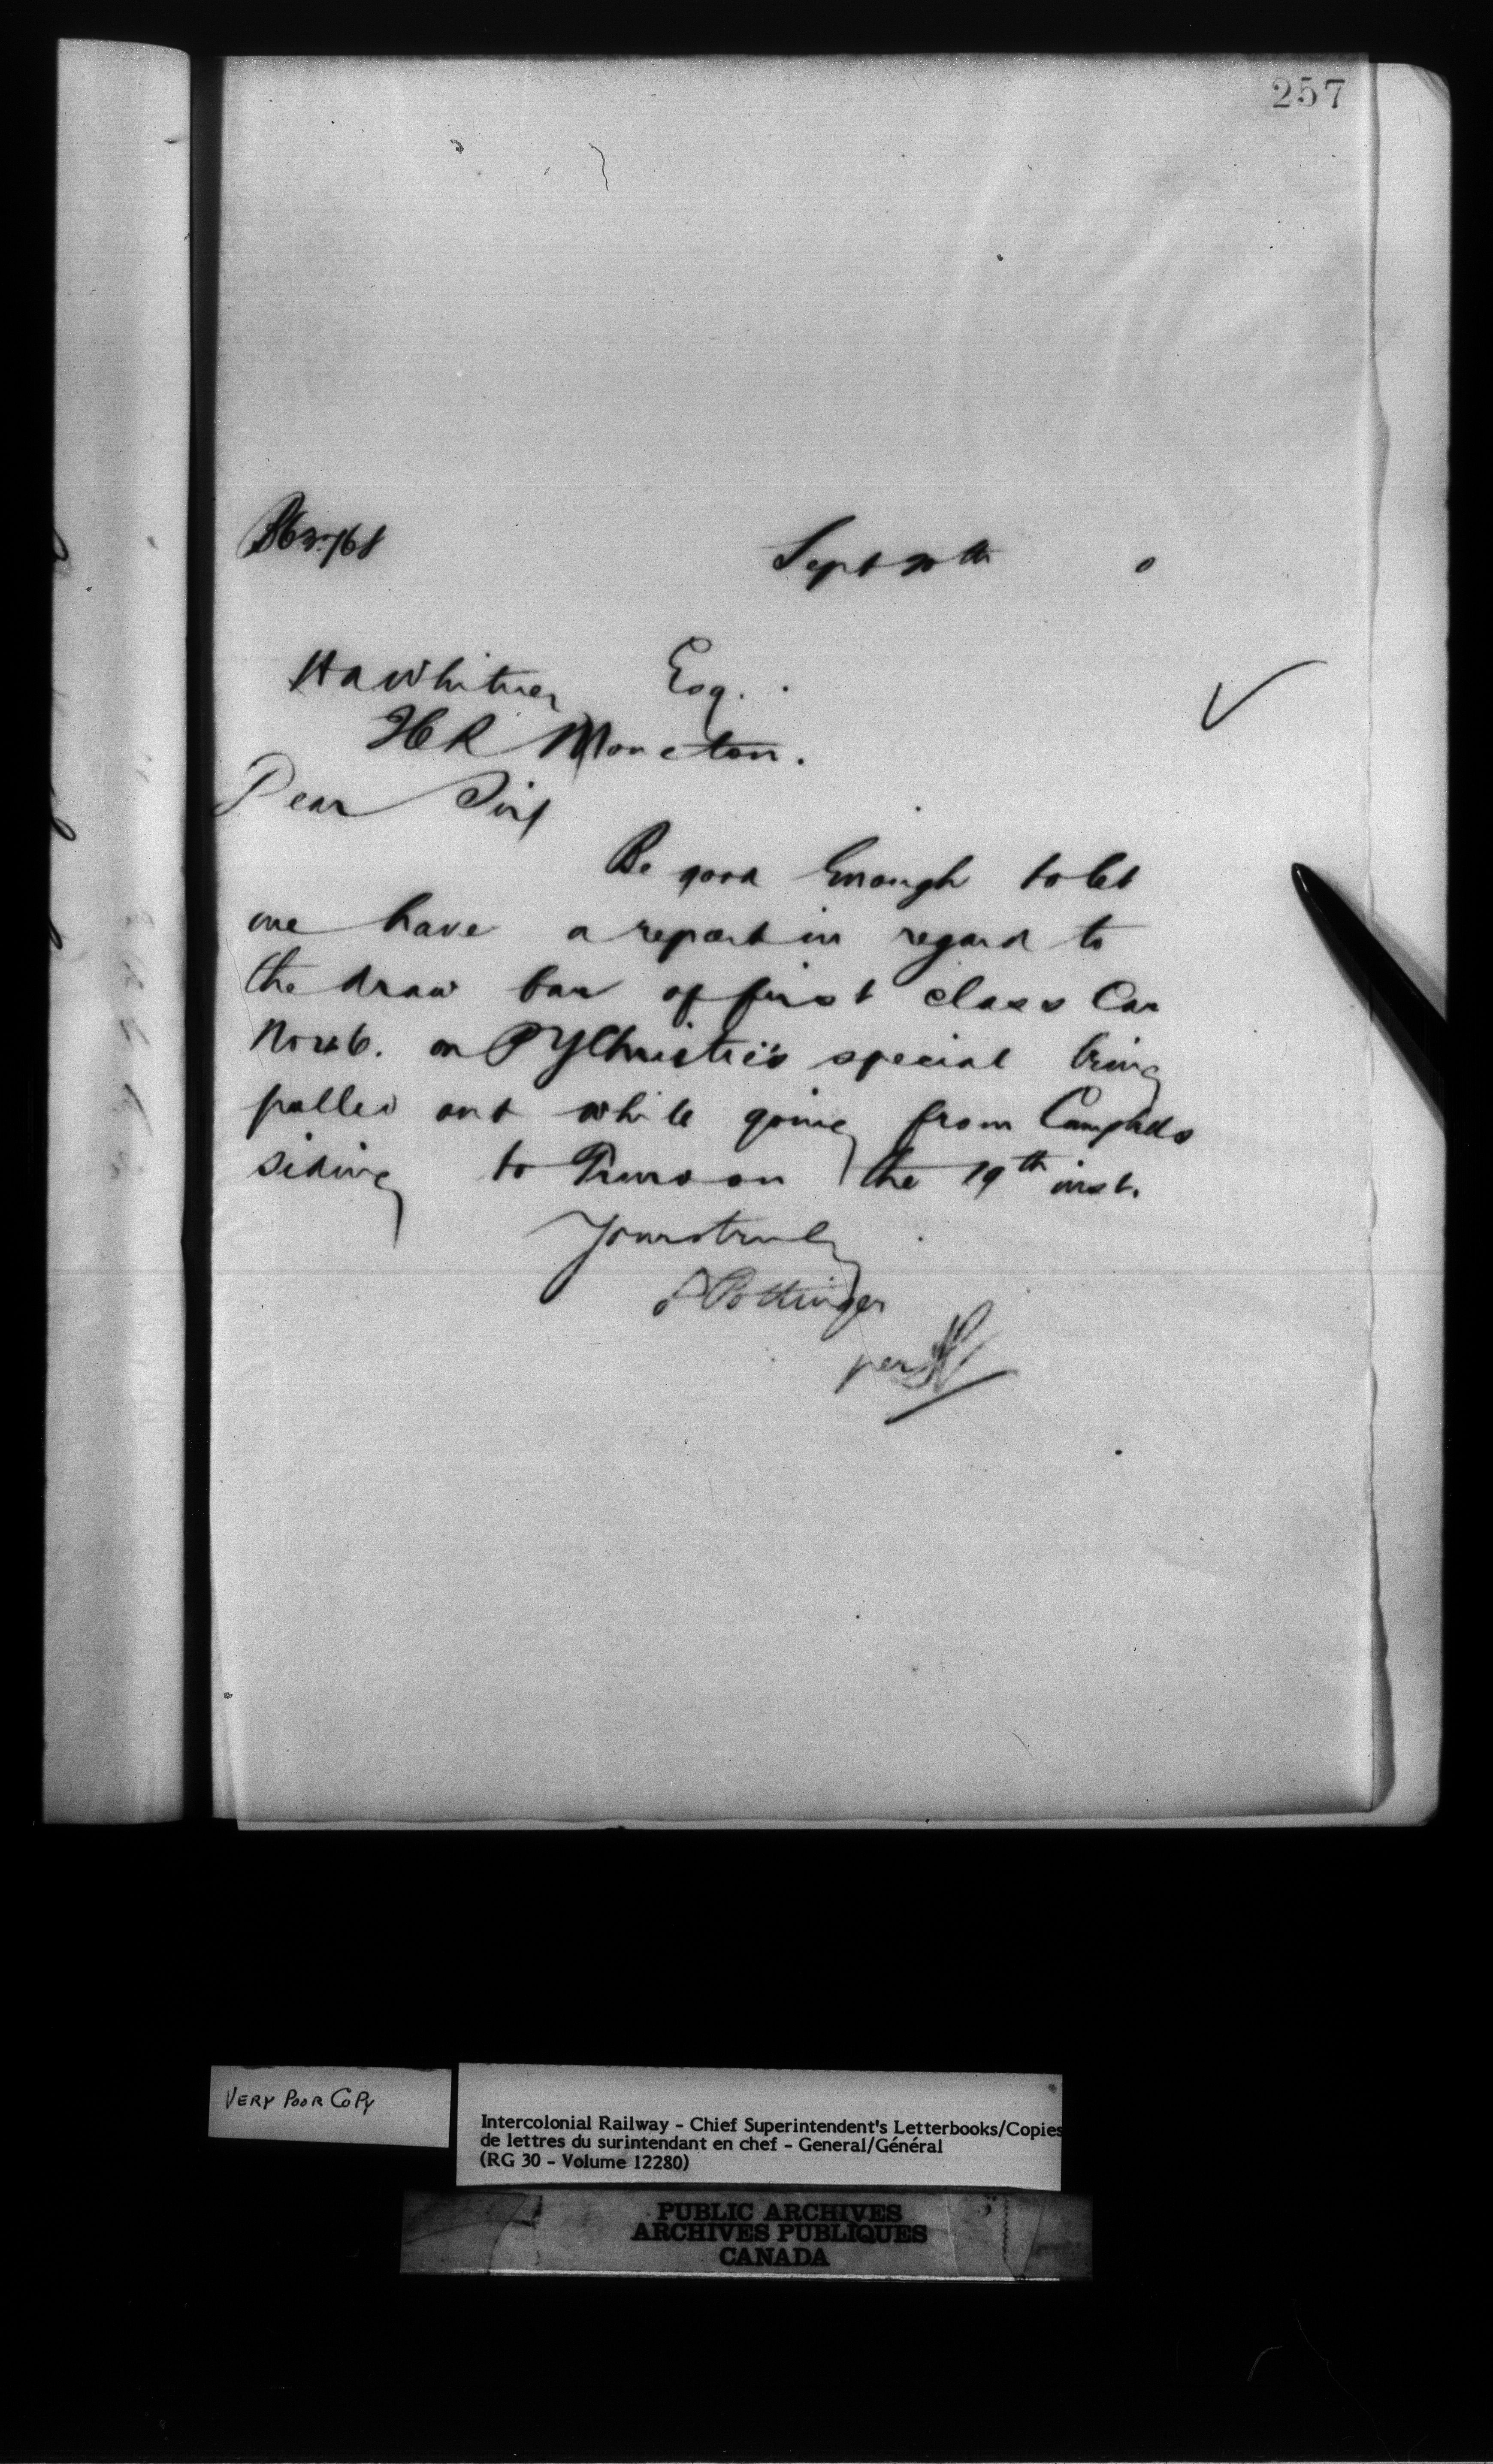 257
Sept 20th 0
H A Whitney Esq.
ICR Moncton.
Dear Sir
Be good Enough to let
me have a report in regard to
the draw bar of first class Car
No 46. on P Y Christie's special being
pulled out while going from Campbells
siding to Truro on the 19th inst.
Yours truly
D Pottinger
per
VERY POOR COPY
Intercolonial Railway - Chief Superintendent's Letterbooks/Copies
de lettres du surintendant en chef - General/Général
(RG 30 - Volume 12280)
PUBLIC ARCHIVES
ARCHIVES PUBLIQUES
CANADA